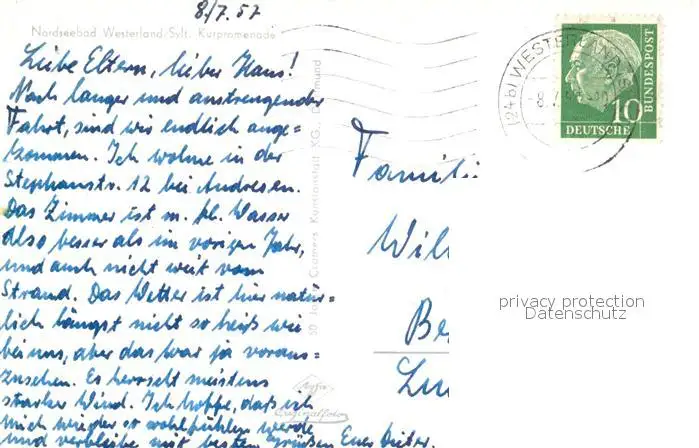 8./7. 57
Nordseebad Westerland/Sylt. Kurpromenade
Liebe Eltern, lieber Hans!
Nach langer und anstrengender
Fahrt, sind wir endlich ange=
kommen. Ich wohne in der
Stephanstr. 12 bei Andresen.
Das Zimmer ist m. fl. Wasser
also besser als im vorigen Jahr,
und auch nicht weit vom
Strand. Das Wetter ist hier natür=
lich längst nicht so heiß wie
bei uns, aber das war ja voraus=
zusehen. Es herrscht meistens
starker Wind. Ich hoffe, daß ich
mich wieder so wohlfühlen werde
und verbleibe mit besten Grüßen Euer Dieter.
Cramers Kunstanstalt KG., Dortmund
Agfa
Originalfoto
(24b) WESTERLAND
-8.7.
10
DEUTSCHE
BUNDESPOST
Famili
Wil
Be
privacy protection
Datenschutz